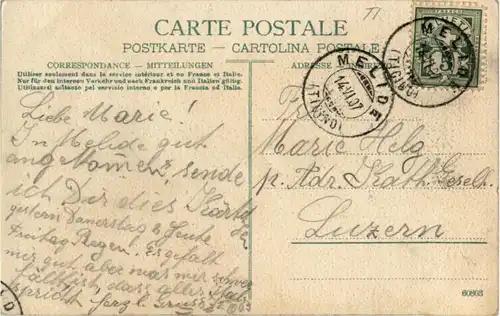 CARTE POSTALE
POSTKARTE - CARTOLINA POSTALE
CORRESPONDANCE - MITTEILUNGEN
ADRESSE
Utiliser seulement dans le service intérieur et en France et Italie.
Nur für den internen Verkehr und nach Frankreich und Italien gültig.
Utilizzarsi soltanto pel servizio interno e per la Francia ed Italia.
TI
MELIDE
(TICINO)
14.VI.07
MELIDE
14.VI.07
(TICINO)
HELVETIA
Liebe Marie!
In Melide gut
angekommen, sende
ich Dir dies Kärtchen.
gestern Donnerstag & heute
Freitag Regen! Es gefällt
mir gut, aber was mir schwer
fällt ist, dass alles
spricht herzl. Grüsse
Frl.
Marie Helg
p. Adr. Kath. Gesellh.
Luzern
60803